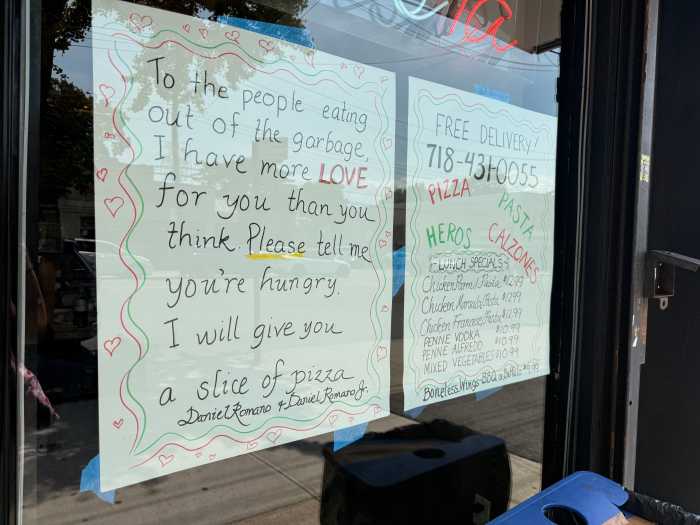 To the people eating
out of the garbage,
I have more LOVE
for you than you
think. Please tell me
you're hungry.
I will give you
a slice of pizza
Daniel Romano & Daniel Romano Jr.
FREE DELIVERY!
718-431-0055
PIZZA PASTA
HEROS CALZONES
LUNCH SPECIALS
Chicken Parm / Pasta $12.99
Chicken Marsala/Pasta $12.99
Chicken Francese/Pasta $12.99
PENNE VODKA $10.99
PENNE ALFREDO $10.99
MIXED VEGETABLES $10.99
Boneless Wings BBQ or Buffalo